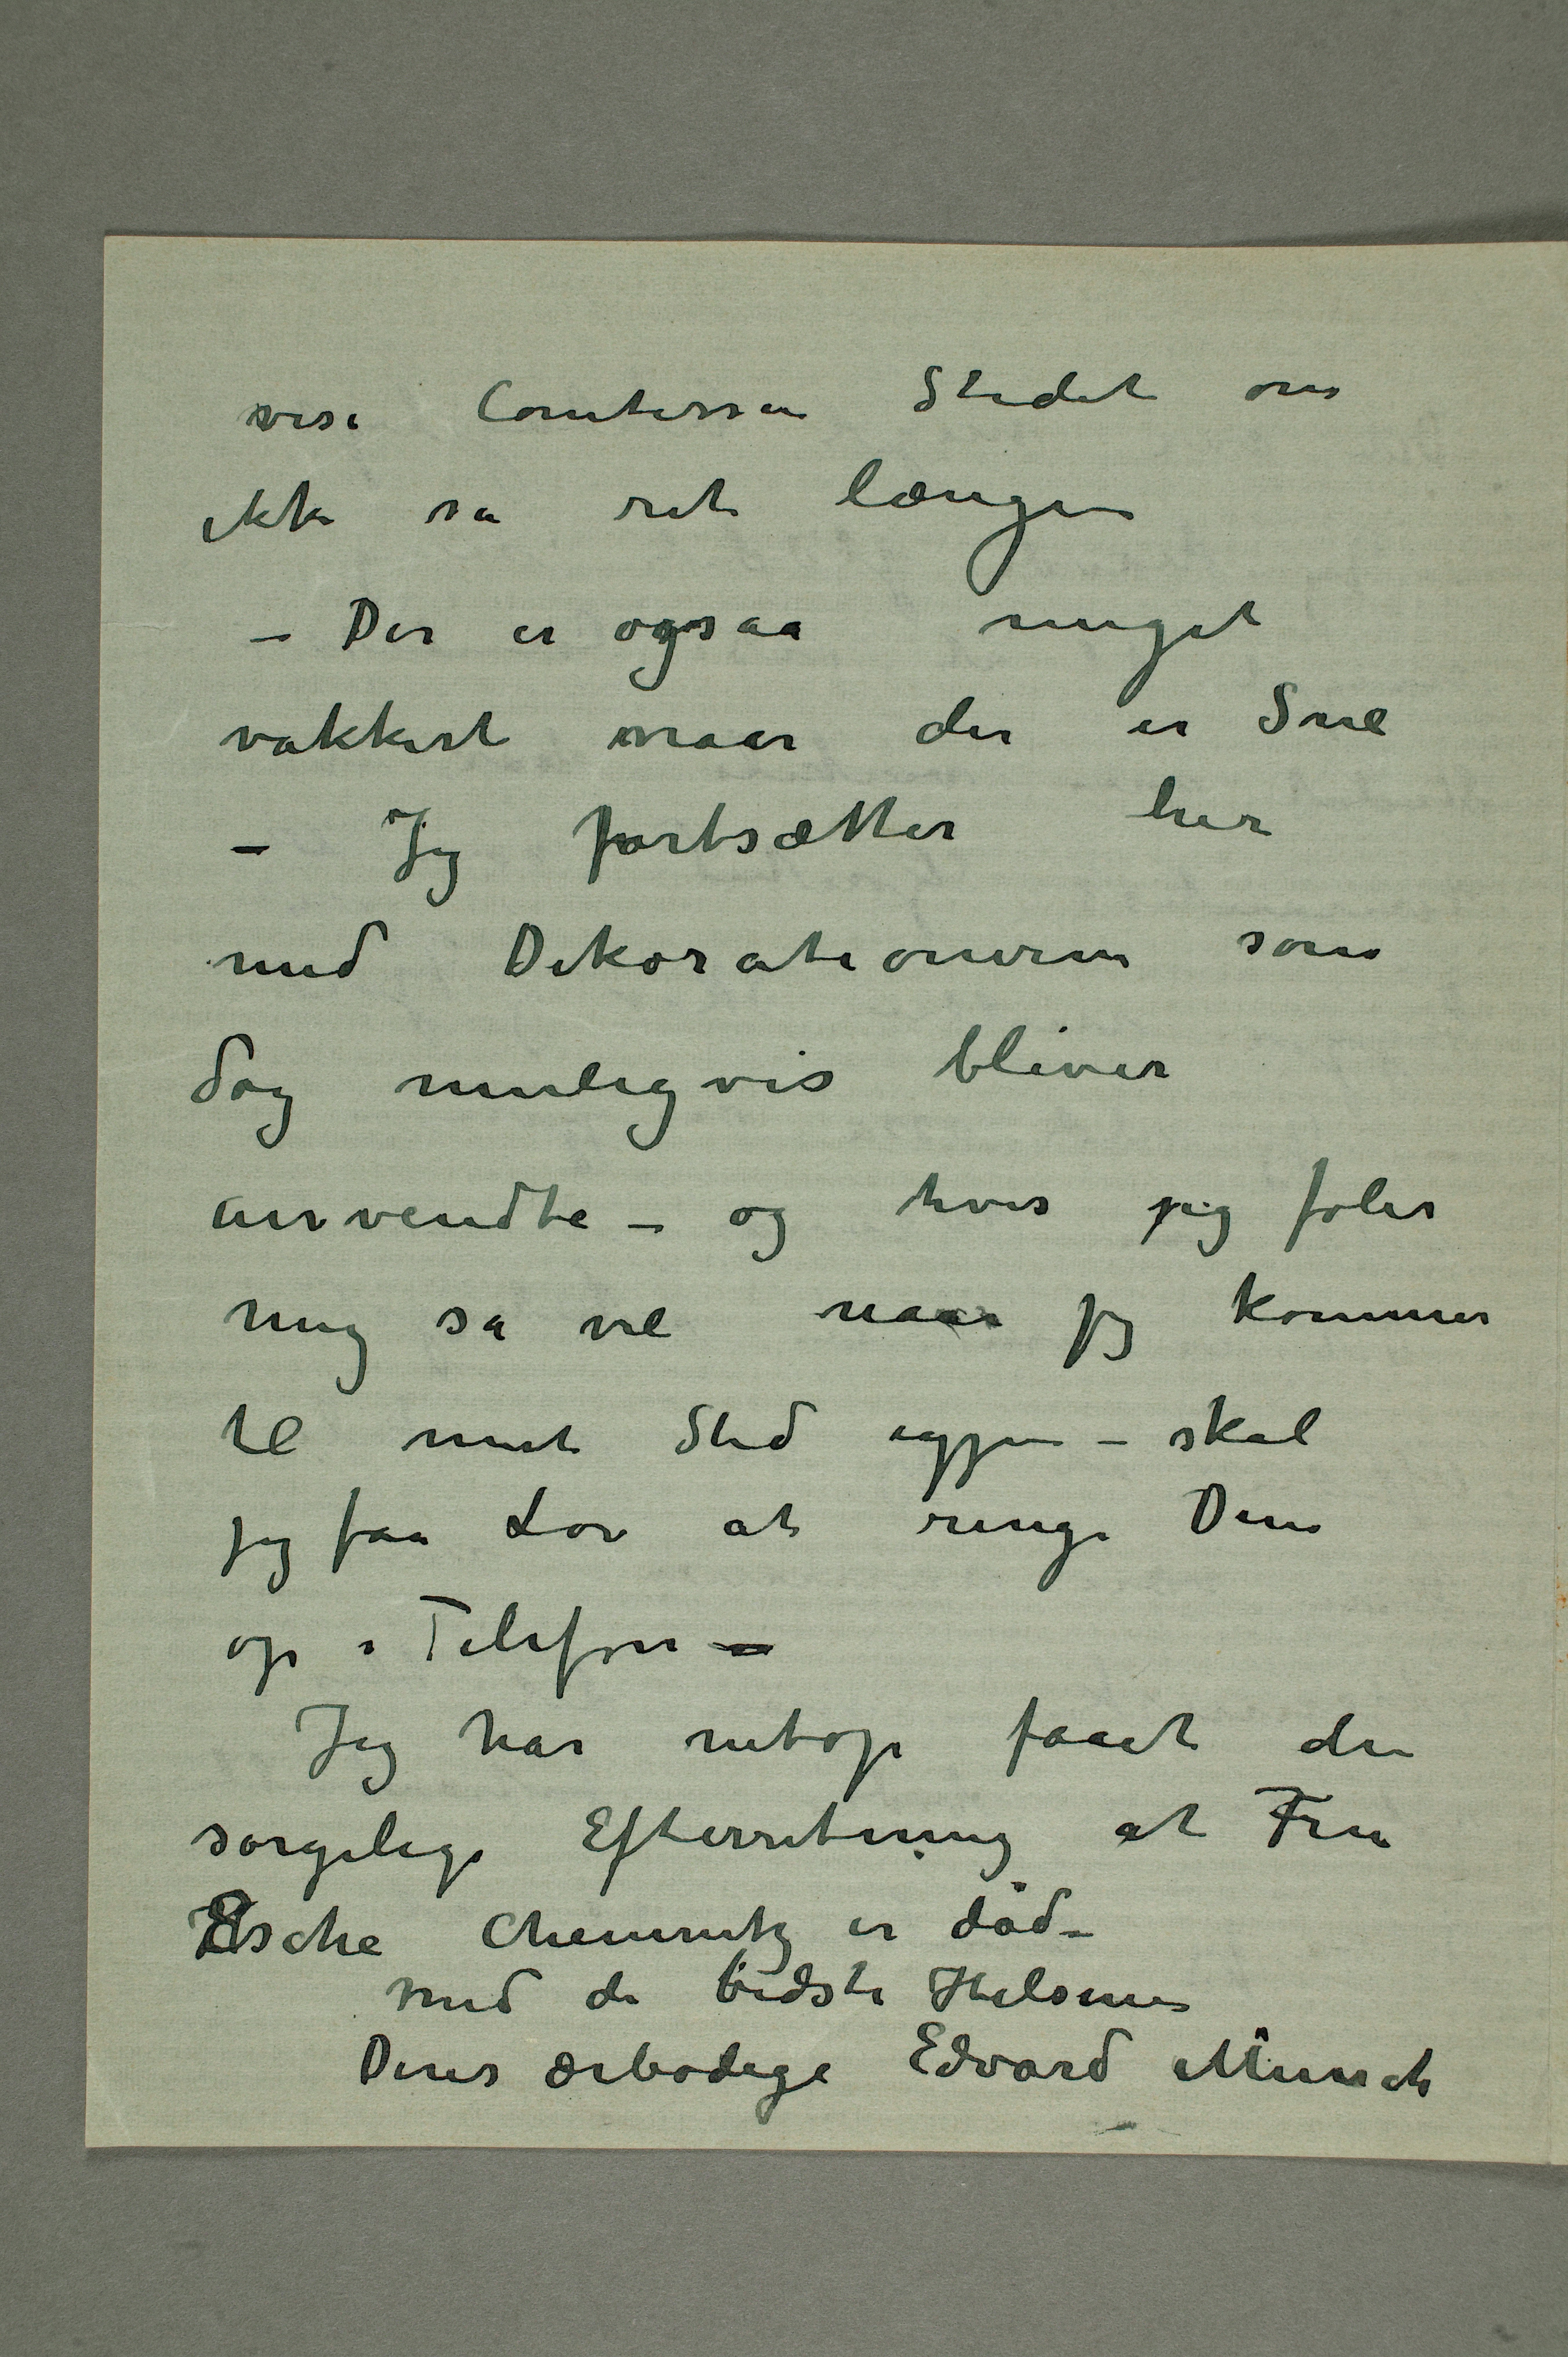 vise Comtessen Stedet om
ikke sa ret længe
– Der er ogsaa meget
vakkert naar der er Sne
– Jeg fortsætter her
med Dekorationerne som
dog muligvis bliver
anvendte – og hvis jeg føler
mig sa vel naar jeg kommer
til mit Sted igjen – skal
jeg faa Lov at ringe Dem
op i Telefon –
Jeg har netop faaet den
sørgelige Efterretning at Fru
Esche Chemnitz er død –
med de bedste Hilsener
Deres ærbødige Edvard Munch